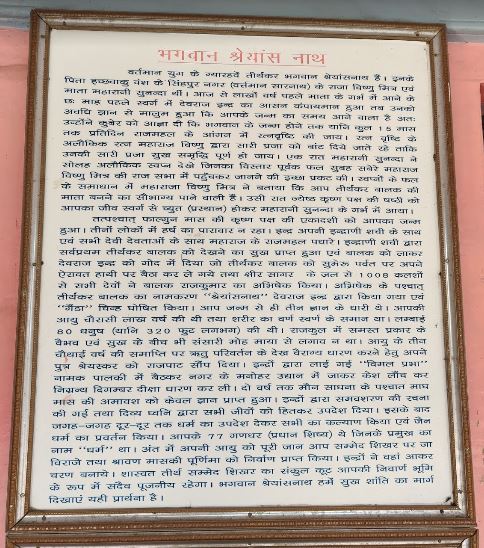 भगवान श्रेयांस नाथ
वर्तमान युग के ग्यारहवें तीर्थंकर भगवान श्रेयांसनाथ है। इनके
पिता इच्छवाकु वंश के सिंहपुर नगर (वर्तमान सारनाथ) के राजा विष्णु मित्र एवं
माता महारानी सुनन्दा थीं। आज से लाखों वर्ष पहले माता के गर्भ में आने के
छः माह पहले स्वर्ग में देवराज इन्द्र का आसन कंपायमान हुआ तब उनको
अवधि ज्ञान से मालूम हुआ कि आपके जन्म का समय आने वाला है अतः
उन्होंने कुबेर को आज्ञा दी कि भगवान के जन्म होने तक यानि कुल 15 मास
तक प्रतिदिन राजमहल के आंगन में रत्नवृष्टि की जाय। रत्न वृष्टि के
अलौकिक रत्न महाराज विष्णु द्वारा सारी प्रजा को बांट दिये जाते रहे ताकि
उनकी सारी प्रजा सुख समृद्धि पूर्ण हो जाय। एक रात महारानी सुनन्दा ने
सोलह अलौकिक स्वप्न देखे जिनका विस्तार पूर्वक फल सुबह सवेरे महाराज
विष्णु मित्र की राज सभा में पहुँचकर जानने की इच्छा प्रकट की। स्वप्नों के फल
के समाधान में महाराजा विष्णु मित्र ने बताया कि आप तीर्थंकर बालक की
माता बनने का सौभाग्य पाने वाली हैं। उसी रात ज्येष्ठ कृष्ण पक्ष की षष्ठी को
आपका जीव स्वर्ग से च्युत (प्रस्थान) होकर महारानी सुनन्दा के गर्भ में आया।
तत्पश्चात् फाल्गुन मास की कृष्ण पक्ष की एकादशी को आपका जन्म
हुआ। तीनों लोकों में हर्ष का पारावार न रहा। इन्द्र अपनी इन्द्राणी शची के साथ
एवं सभी देवी देवताओं के साथ महाराज के राजमहल पधारे। इन्द्राणी शची द्वारा
सर्वप्रथम तीर्थंकर बालक को देखने का सुख प्राप्त हुआ एवं बालक को लाकर
देवराज इन्द्र को गोद में दिया जो तीर्थंकर बालक को सुमेरू पर्वत पर अपने
ऐरावत हाथी पर बैठा कर ले गये तथा क्षीर सागर के जल से 1008 कलशों
से सभी देवों ने बालक राजकुमार का अभिषेक किया। अभिषेक के पश्चात्
तीर्थंकर बालक का नामकरण "श्रेयांसनाथ" देवराज इन्द्र द्वारा किया गया एवं
"गैंडा" चिन्ह घोषित किया। आप जन्म से ही तीन ज्ञान के धारी थे। आपकी
आयु चौरासी लाख वर्ष की थी तथा शरीर का वर्ण स्वर्ण के समान था। लम्बाई
80 धनुष (यानि 320 फूट लगभग) की थी। राजकुल में समस्त प्रकार के
वैभव एवं सुख के बीच भी संसारी मोह माया से लगाव न था। आयु के तीन
चौथाई वर्ष की समाप्ति पर ऋतु परिवर्तन के देख वैराग्य धारण करने हेतु अपने
पुत्र श्रेयस्कर को राजपाट सौंप दिया। इन्द्रों द्वारा लाई गई "विमल प्रभा"
नामक पालकी में बैठकर नगर के मनोहर उद्यान में जाकर केश लौंच कर
निग्रन्थ दिगम्बर दीक्षा धारण कर ली। दो वर्ष तक मौन साधना के पश्चात माघ
मास की अमावश को केवल ज्ञान प्राप्त हुआ। इन्द्रों द्वारा समवशरण की रचना
की गई तथा दिव्य ध्वनि द्वारा सभी जीवों को हितकर उपदेश दिया। इसके बाद
जगह-जगह दूर-दूर तक धर्म का उपदेश देकर सभी का कल्याण किया एवं जैन
धर्म का प्रवर्तन किया। आपके 77 गणधर (प्रधान शिष्य) थे जिनके प्रमुख का
नाम "धर्म" था। अंत में अपनी आयु को पूरी जान आप सम्मेद शिखर पर जा
विराजे तथा श्रावण मासकी पूर्णिमा को निर्वाण प्राप्त किया। इन्द्रों ने वहां आकर
चरण बनाये। शाश्वत तीर्थ सम्मेद शिखर का संकुल कूट आपकी निर्वाण भूमि
के रूप में सदैव पूजनीय रहेगा। भगवान श्रेयांसनाथ हमें सुख शांति का मार्ग
दिखाएं यही प्रार्थना है।